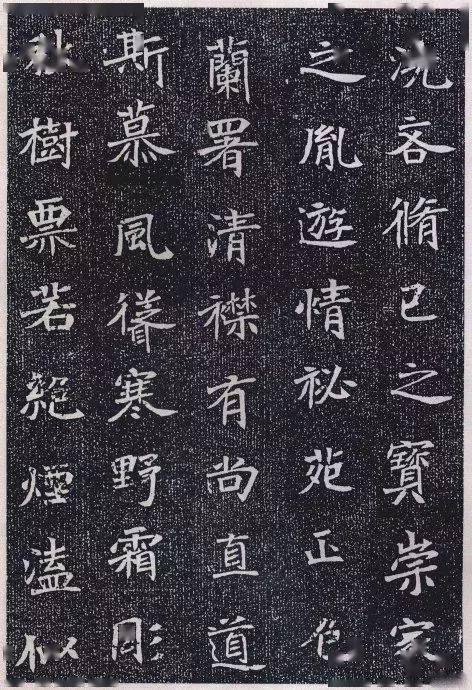 洗吝脩已之寶崇家
之胤遊情祕苑正色
蘭署清襟有尚直道
斯慕風從寒野霜彫
秋樹票若絕煙溘似